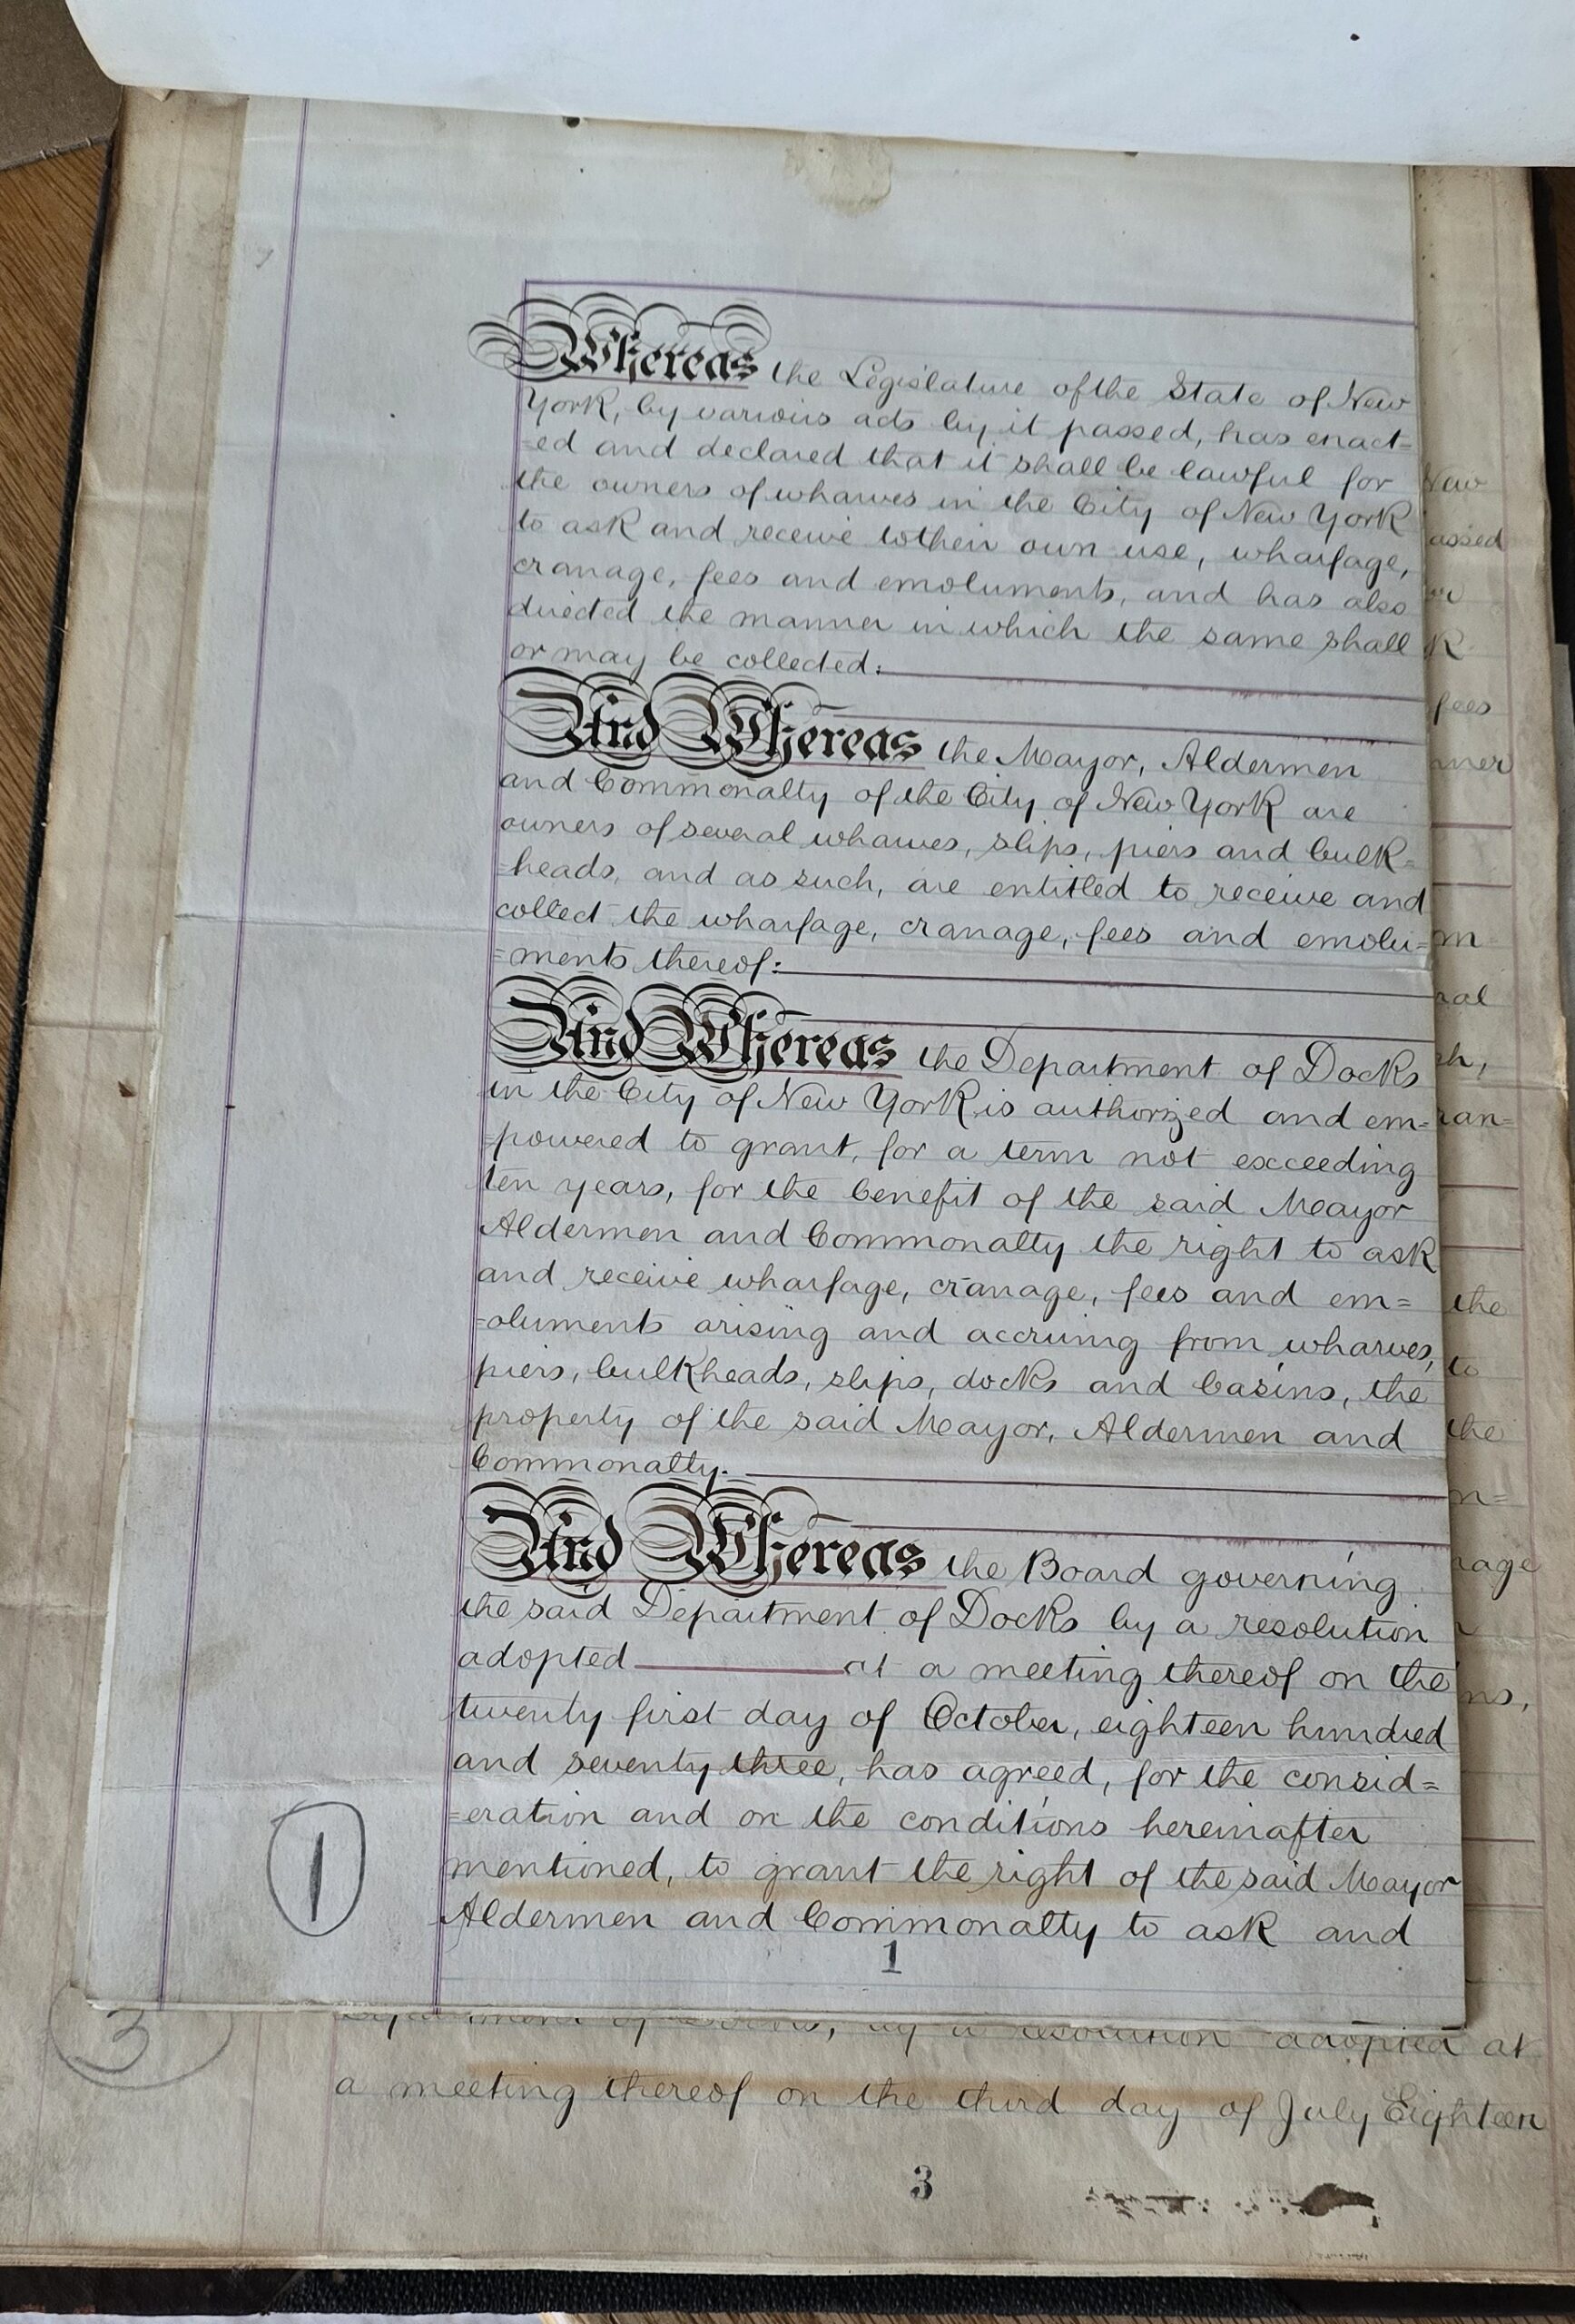 Whereas the Legislature of the State of New
York, by various acts by it passed, has enact=
=ed and declared that it shall be lawful for
the owners of wharves in the City of New York
to ask and receive to their own use, wharfage,
cranage, fees and emoluments, and has also
directed the manner in which the same shall
or may be collected:
And Whereas the Mayor, Aldermen
and Commonalty of the City of New York are
owners of several wharves, slips, piers and bulk=
=heads, and as such, are entitled to receive and
collect the wharfage, cranage, fees and emolu=
=ments thereof:
And Whereas the Department of Docks
in the City of New York is authorized and em=
=powered to grant, for a term not exceeding
ten years, for the benefit of the said Mayor
Aldermen and Commonalty the right to ask
and receive wharfage, cranage, fees and em=
=oluments arising and accruing from wharves,
piers, bulkheads, slips, docks and basins, the
property of the said Mayor, Aldermen and
Commonalty.
And Whereas the Board governing
the said Department of Docks by a resolution
adopted at a meeting thereof on the
twenty first day of October, eighteen hundred
and seventy three, has agreed, for the consid=
=eration and on the conditions hereinafter
mentioned, to grant the right of the said Mayor
Aldermen and Commonalty to ask and
1
1
New
assed
or
k
fees
nner
m
ral
ch,
ran=
the
to
the
n=
nage
ns,
3
by a resolution adopted at
a meeting thereof on the third day of July Eighteen
3